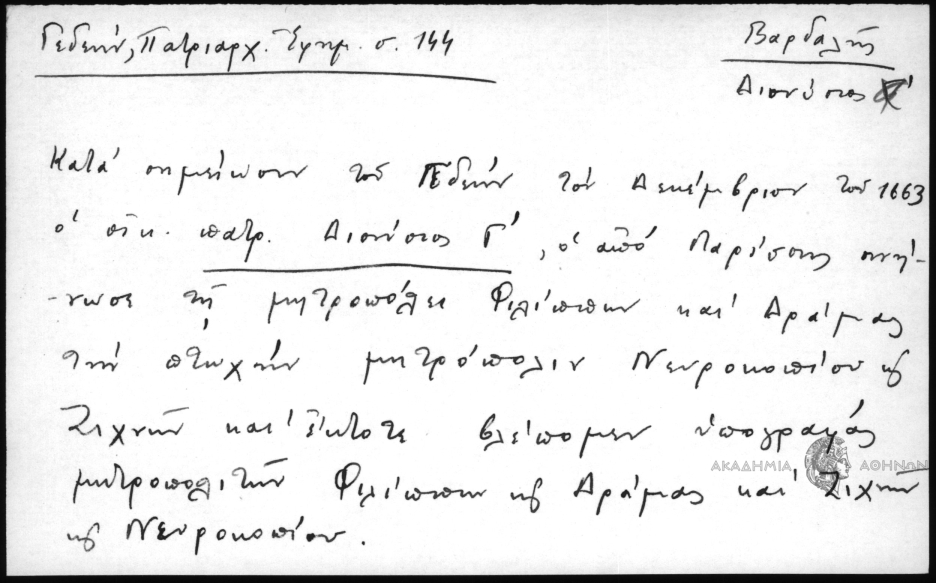 Γεδεών, Πατριαρχ. Ἐφημ. σ. 144
Βαρδαλής
Διονύσιος Γ'
Κατά σημείωσιν τοῦ Γεδεών τόν Δεκέμβριον τοῦ 1663
ὁ οἰκ. πατρ. Διονύσιος Γ', ὁ ἀπό Λαρίσσης συνή-
-νωσε τῇ μητροπόλει Φιλίππων καί Δράμας
τήν πτωχήν μητρόπολιν Νευροκοπίου κ
Ζιχνῶν καί ἔκτοτε βλέπομεν ὑπογραφάς
μητροπολιτῶν Φιλίππων κ Δράμας καί Ζιχνῶν
κ Νευροκοπίου.
ΑΚΑΔΗΜΙΑ ΑΘΗΝΩΝ